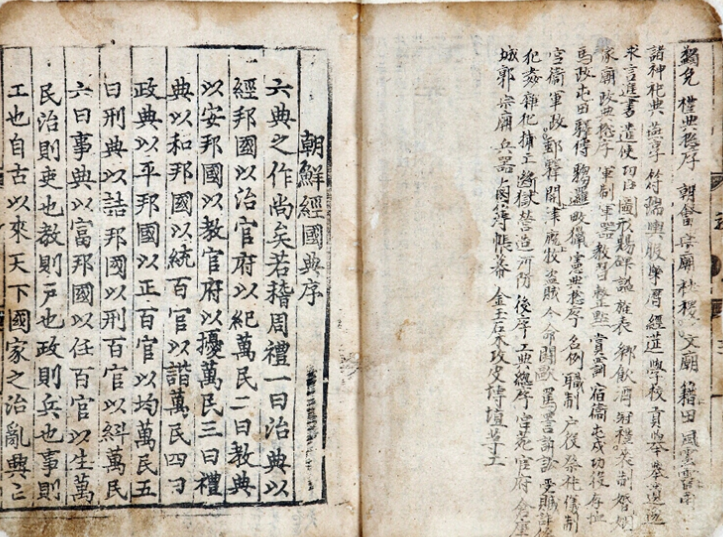 蠲免 禮典摠序 朝會 宗廟 社稷 文廟 籍田 風雲雷雨
諸神祀典 燕享 符瑞 輿服 樂 曆 經筵 學校 貢擧 擧遺逸
求言進書 遣使 功臣圖形賜碑 諡 旌表 鄕飮酒 冠禮 喪制 婚姻
家廟 政典摠序 軍制 軍器 敎習 整點 賞罰 宿衛 屯戍 功役 存恤
馬政 屯田 驛傳 騶邏 畋獵 憲典摠序 名例 職制 戶役 祭祀 儀制
宮衛 軍政 郵驛 關津 廐牧 盜賊 人命 鬪毆 罵詈 訴訟 受贓 詐僞
犯姦 雜犯 捕亡 斷獄 營造 河防 後序 工典總序 宮苑 官府 倉庫
城郭 宗廟 兵器 鹵簿 帳幕 金玉石木攻皮塼埴等工
朝鮮經國典序
六典之作尚矣若稽周禮一曰治典以
經邦國以治官府以紀萬民二曰教典
以安邦國以教官府以擾萬民三曰禮
典以和邦國以統百官以諧萬民四曰
政典以平邦國以正百官以均萬民五
曰刑典以詰邦國以刑百官以糾萬民
六曰事典以富邦國以任百官以生萬
民治則吏也教則戶也政則兵也事則
工也自古以來天下國家之治亂興亡